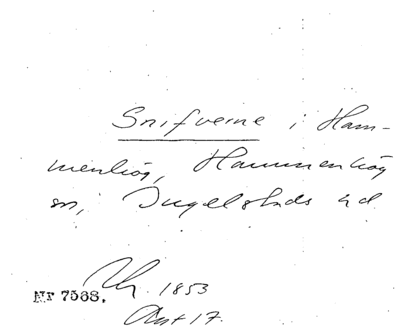 Snifverne i Ham-
menhög, Hammenhög
sn, Ingelstads hd
1853
Nr 7568.
Ant 17.